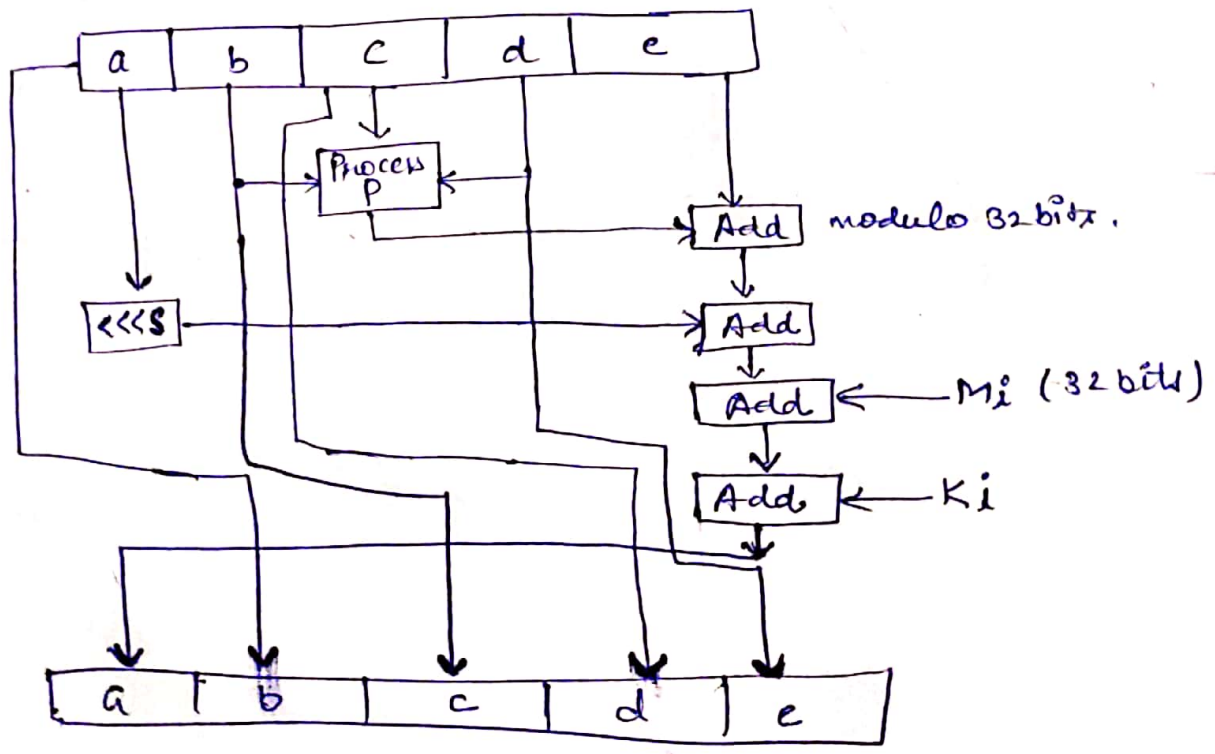 a b c d e
Process
P
Add modulo 32 bits.
<<<S Add
Add Mi (32 bits)
Add Ki
a b c d e